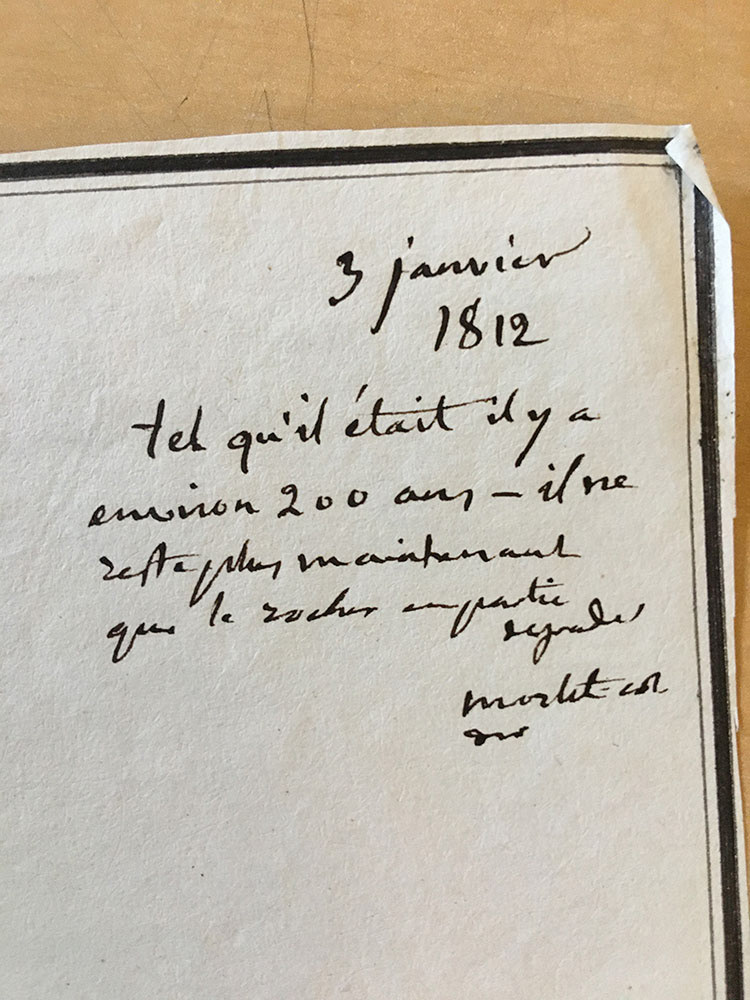 3 janvier
1812
tel qu'il était il y a
environ 200 ans – il ne
reste plus maintenant
que le rocher en partie